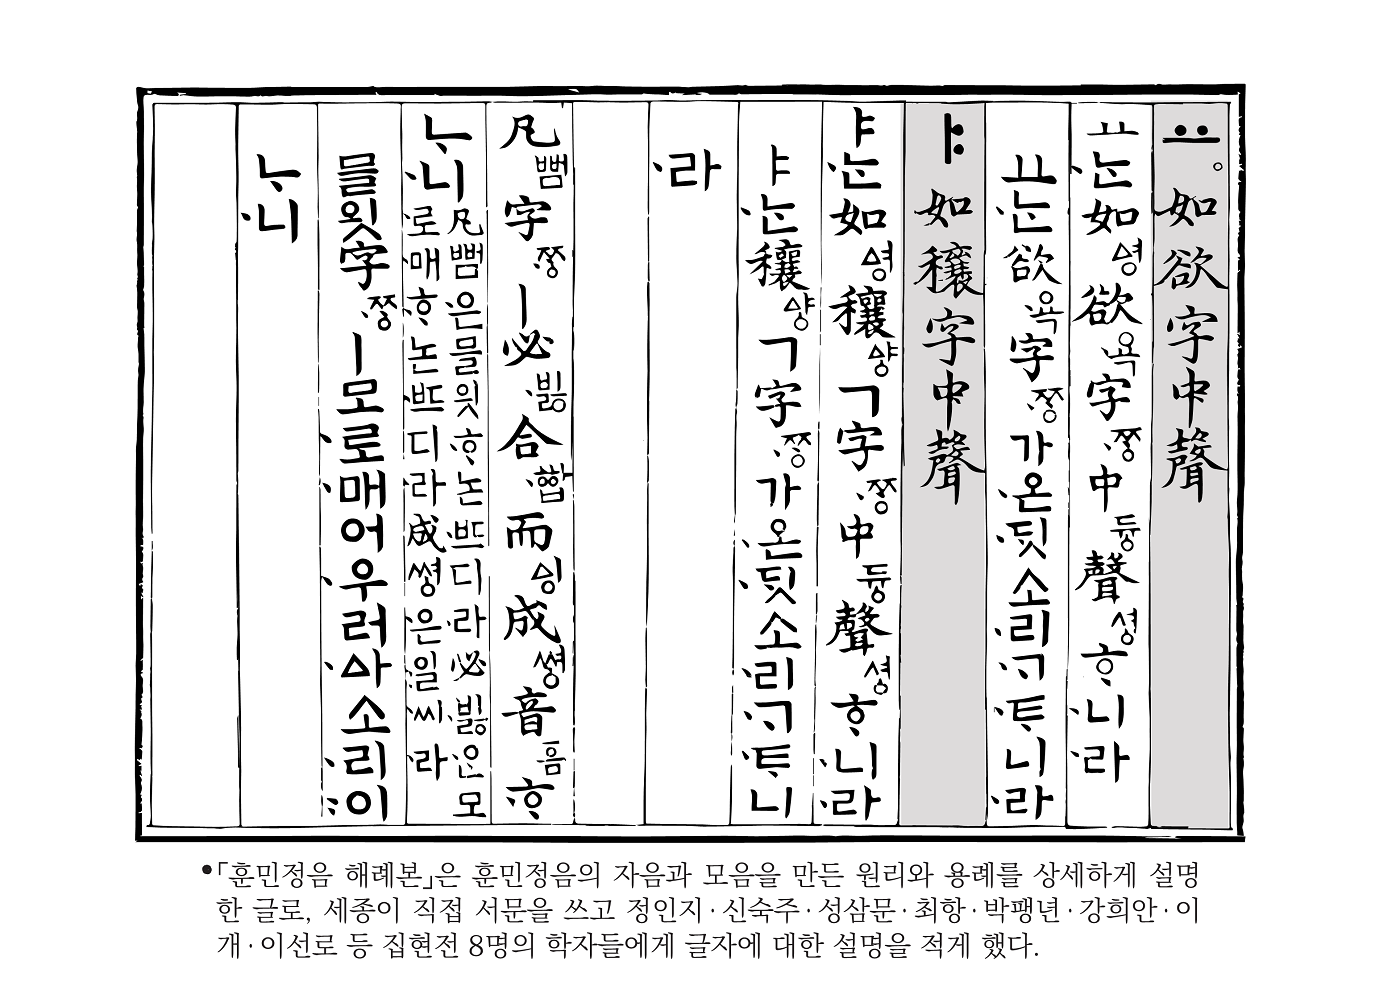 ㅛ。如欲字中聲
ㅛ·ᄂᆞᆫ如ᅀᅧᆼ欲욕字·ᄍᆞᆼ中듀ᇰ聲셔ᇰᄒᆞ·니·라
ㅛ·ᄂᆞᆫ欲욕字·ᄍᆞᆼ가·온·ᄃᆡᆺ소·리·ᄀᆞ·ᄐᆞ니·라
ㅑ如穰字中聲
ㅑ·ᄂᆞᆫ如ᅀᅧᆼ穰ᅀᅣᆼㄱ字·ᄍᆞᆼ中듀ᇰ聲셔ᇰᄒᆞ·니·라
ㅑ·ᄂᆞᆫ穰ᅀᅣᆼㄱ字·ᄍᆞᆼ가·온·ᄃᆡᆺ소·리·ᄀᆞ·ᄐᆞ니
·라
凡뻠字·ᄍᆞᆼㅣ必·비ᇙ合·ᅘᅡᆸ而ᅀᅵᆼ成쎠ᇰ音ᅙᅳᆷ·ᄒᆞ
ᄂᆞ·니
凡뻠·은믈읫·ᄒᆞ논·ᄠᅳ디·라必·비ᇙ·은모
·로·매·ᄒᆞ논·ᄠᅳ디·라成쎠ᇰ·은:일·씨·라
믈읫字·ᄍᆞᆼㅣ모·로·매어·우러·ᅀᅡ소·리:이
ᄂᆞ·니
•「훈민정음 해례본」은 훈민정음의 자음과 모음을 만든 원리와 용례를 상세하게 설명
한 글로, 세종이 직접 서문을 쓰고 정인지·신숙주·성삼문·최항·박팽년·강희안·이
개·이선로 등 집현전 8명의 학자들에게 글자에 대한 설명을 적게 했다.